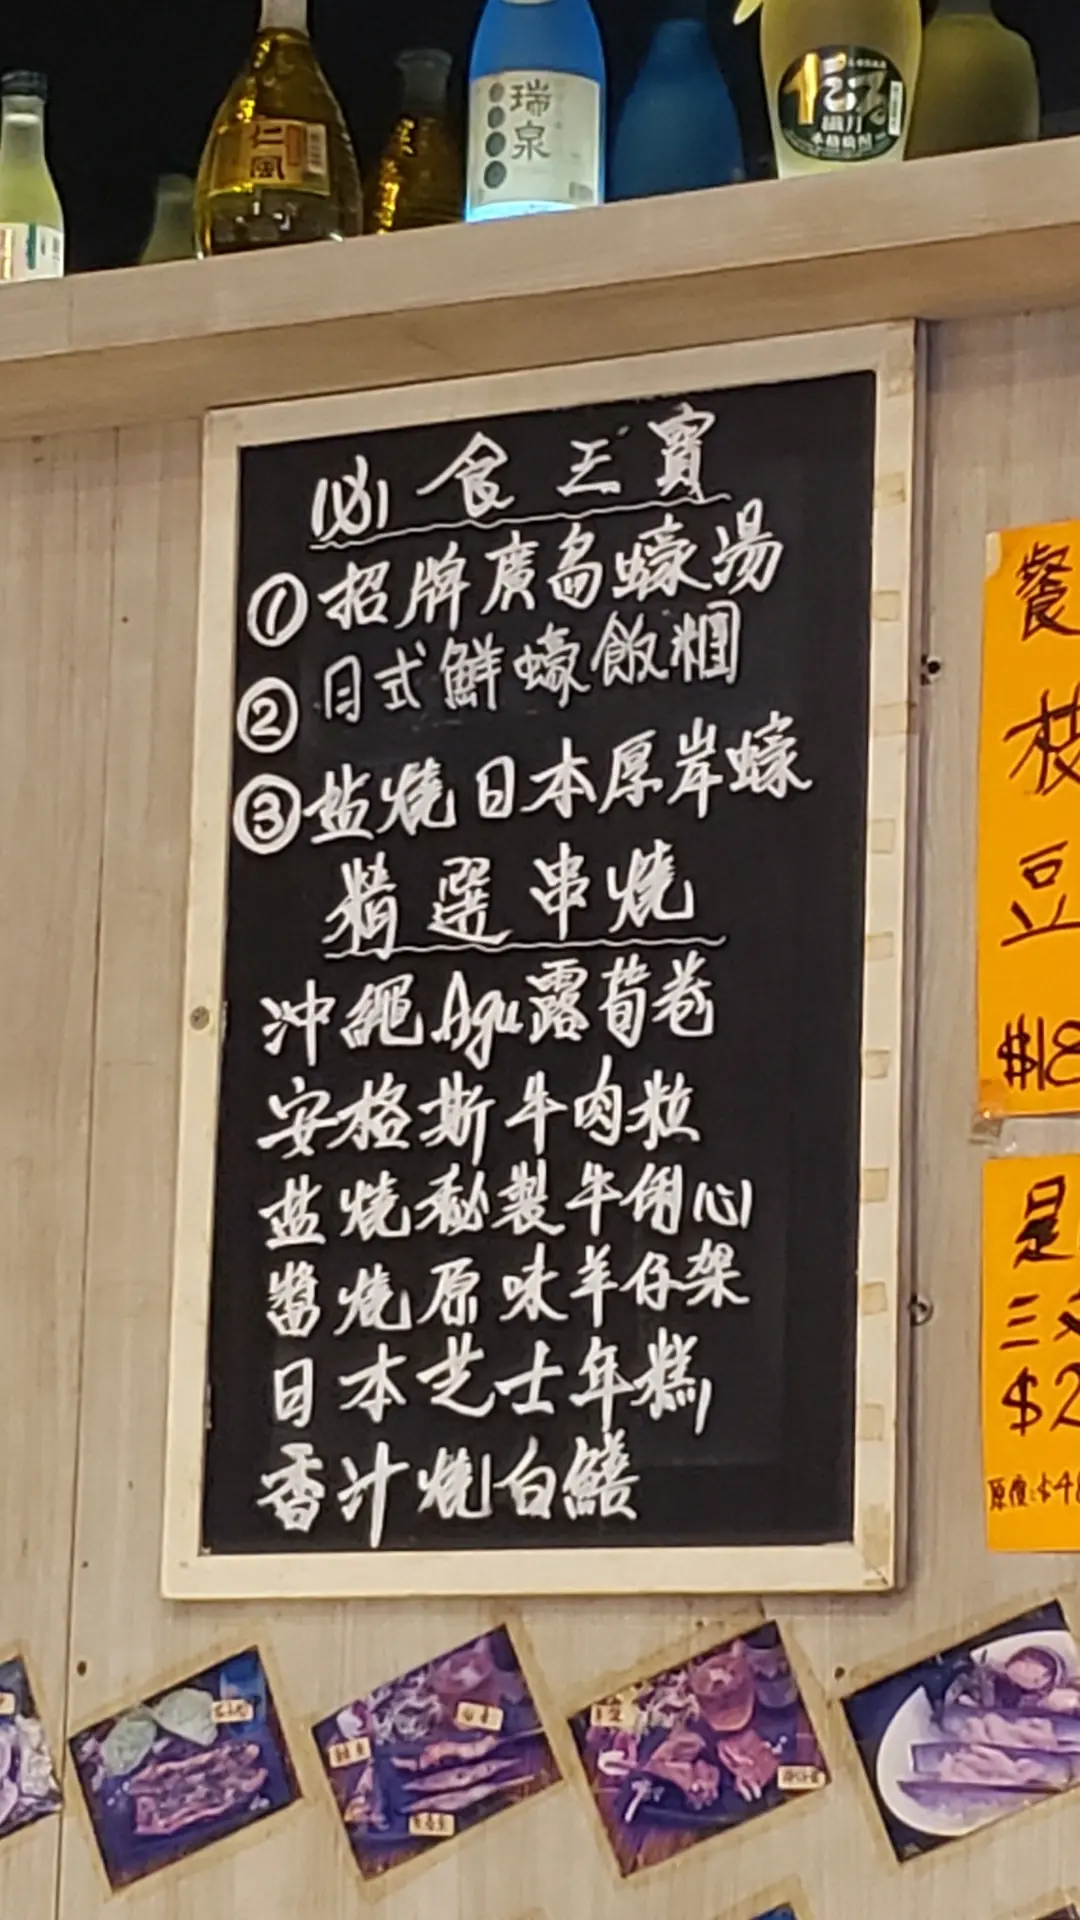 仁風
瑞泉
必食三寶
① 招牌廣島蠔湯
② 日式鮮蠔飯糰
③ 盐燒日本厚岸蠔
精選串燒
沖繩Agu露荀卷
安格斯牛肉粒
盐燒秘製牛脷心
醬燒原味羊仔架
日本芝士年糕
香汁燒白鱔
餐
枝
豆
$18
是
三文
$2
原價:$48